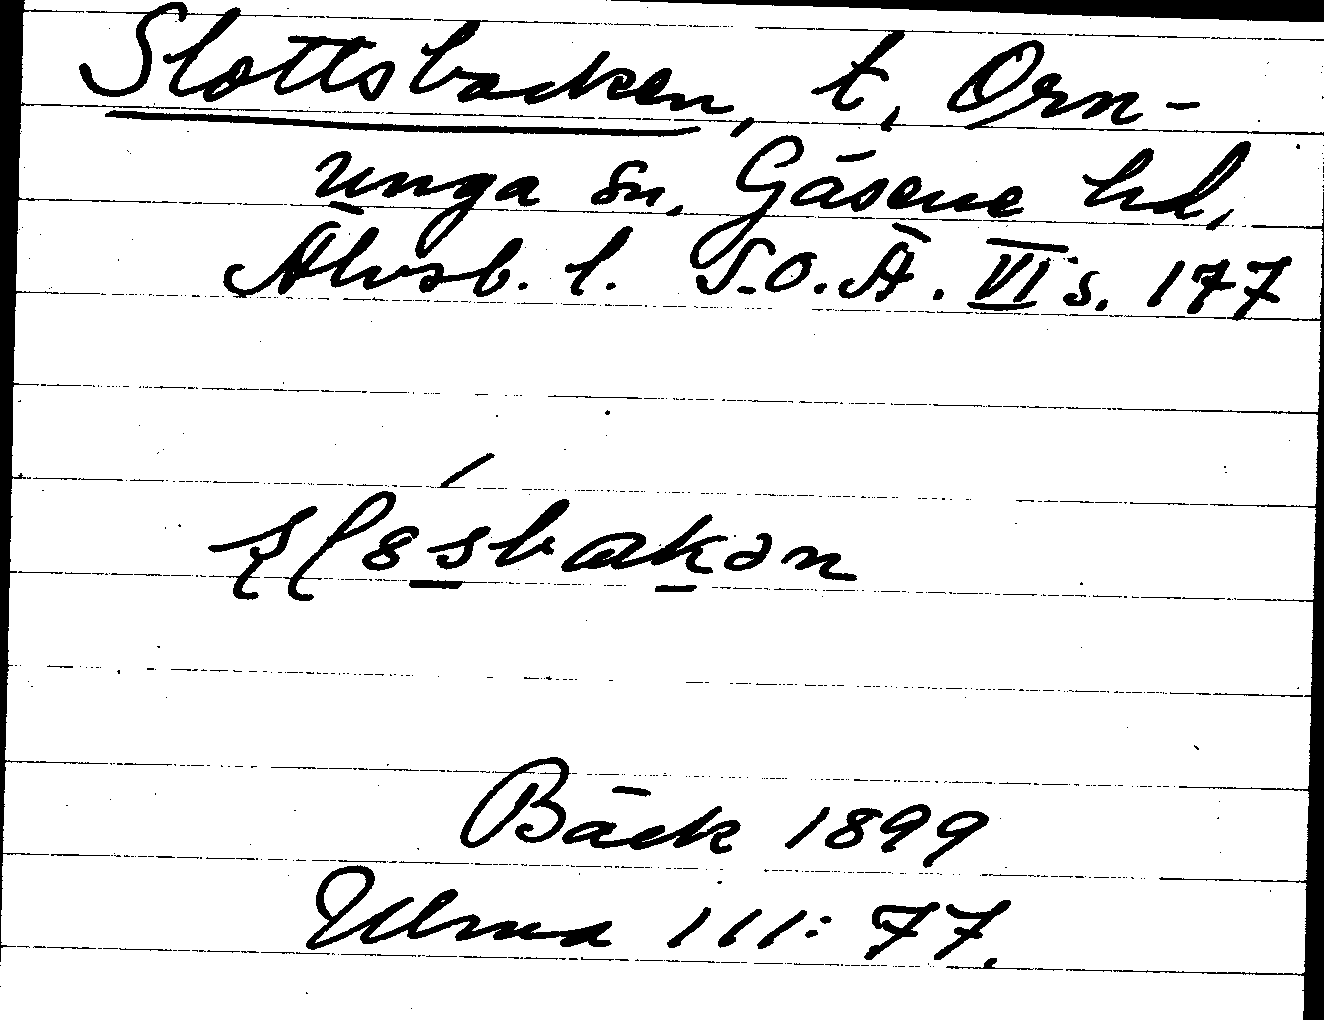 Slottsbacken, t, Orn-
unga sn. Gäsene hd,
Älvsb. l. S.O.Ä. VI s. 177
Bäck 1899
Ulma 111: 77.